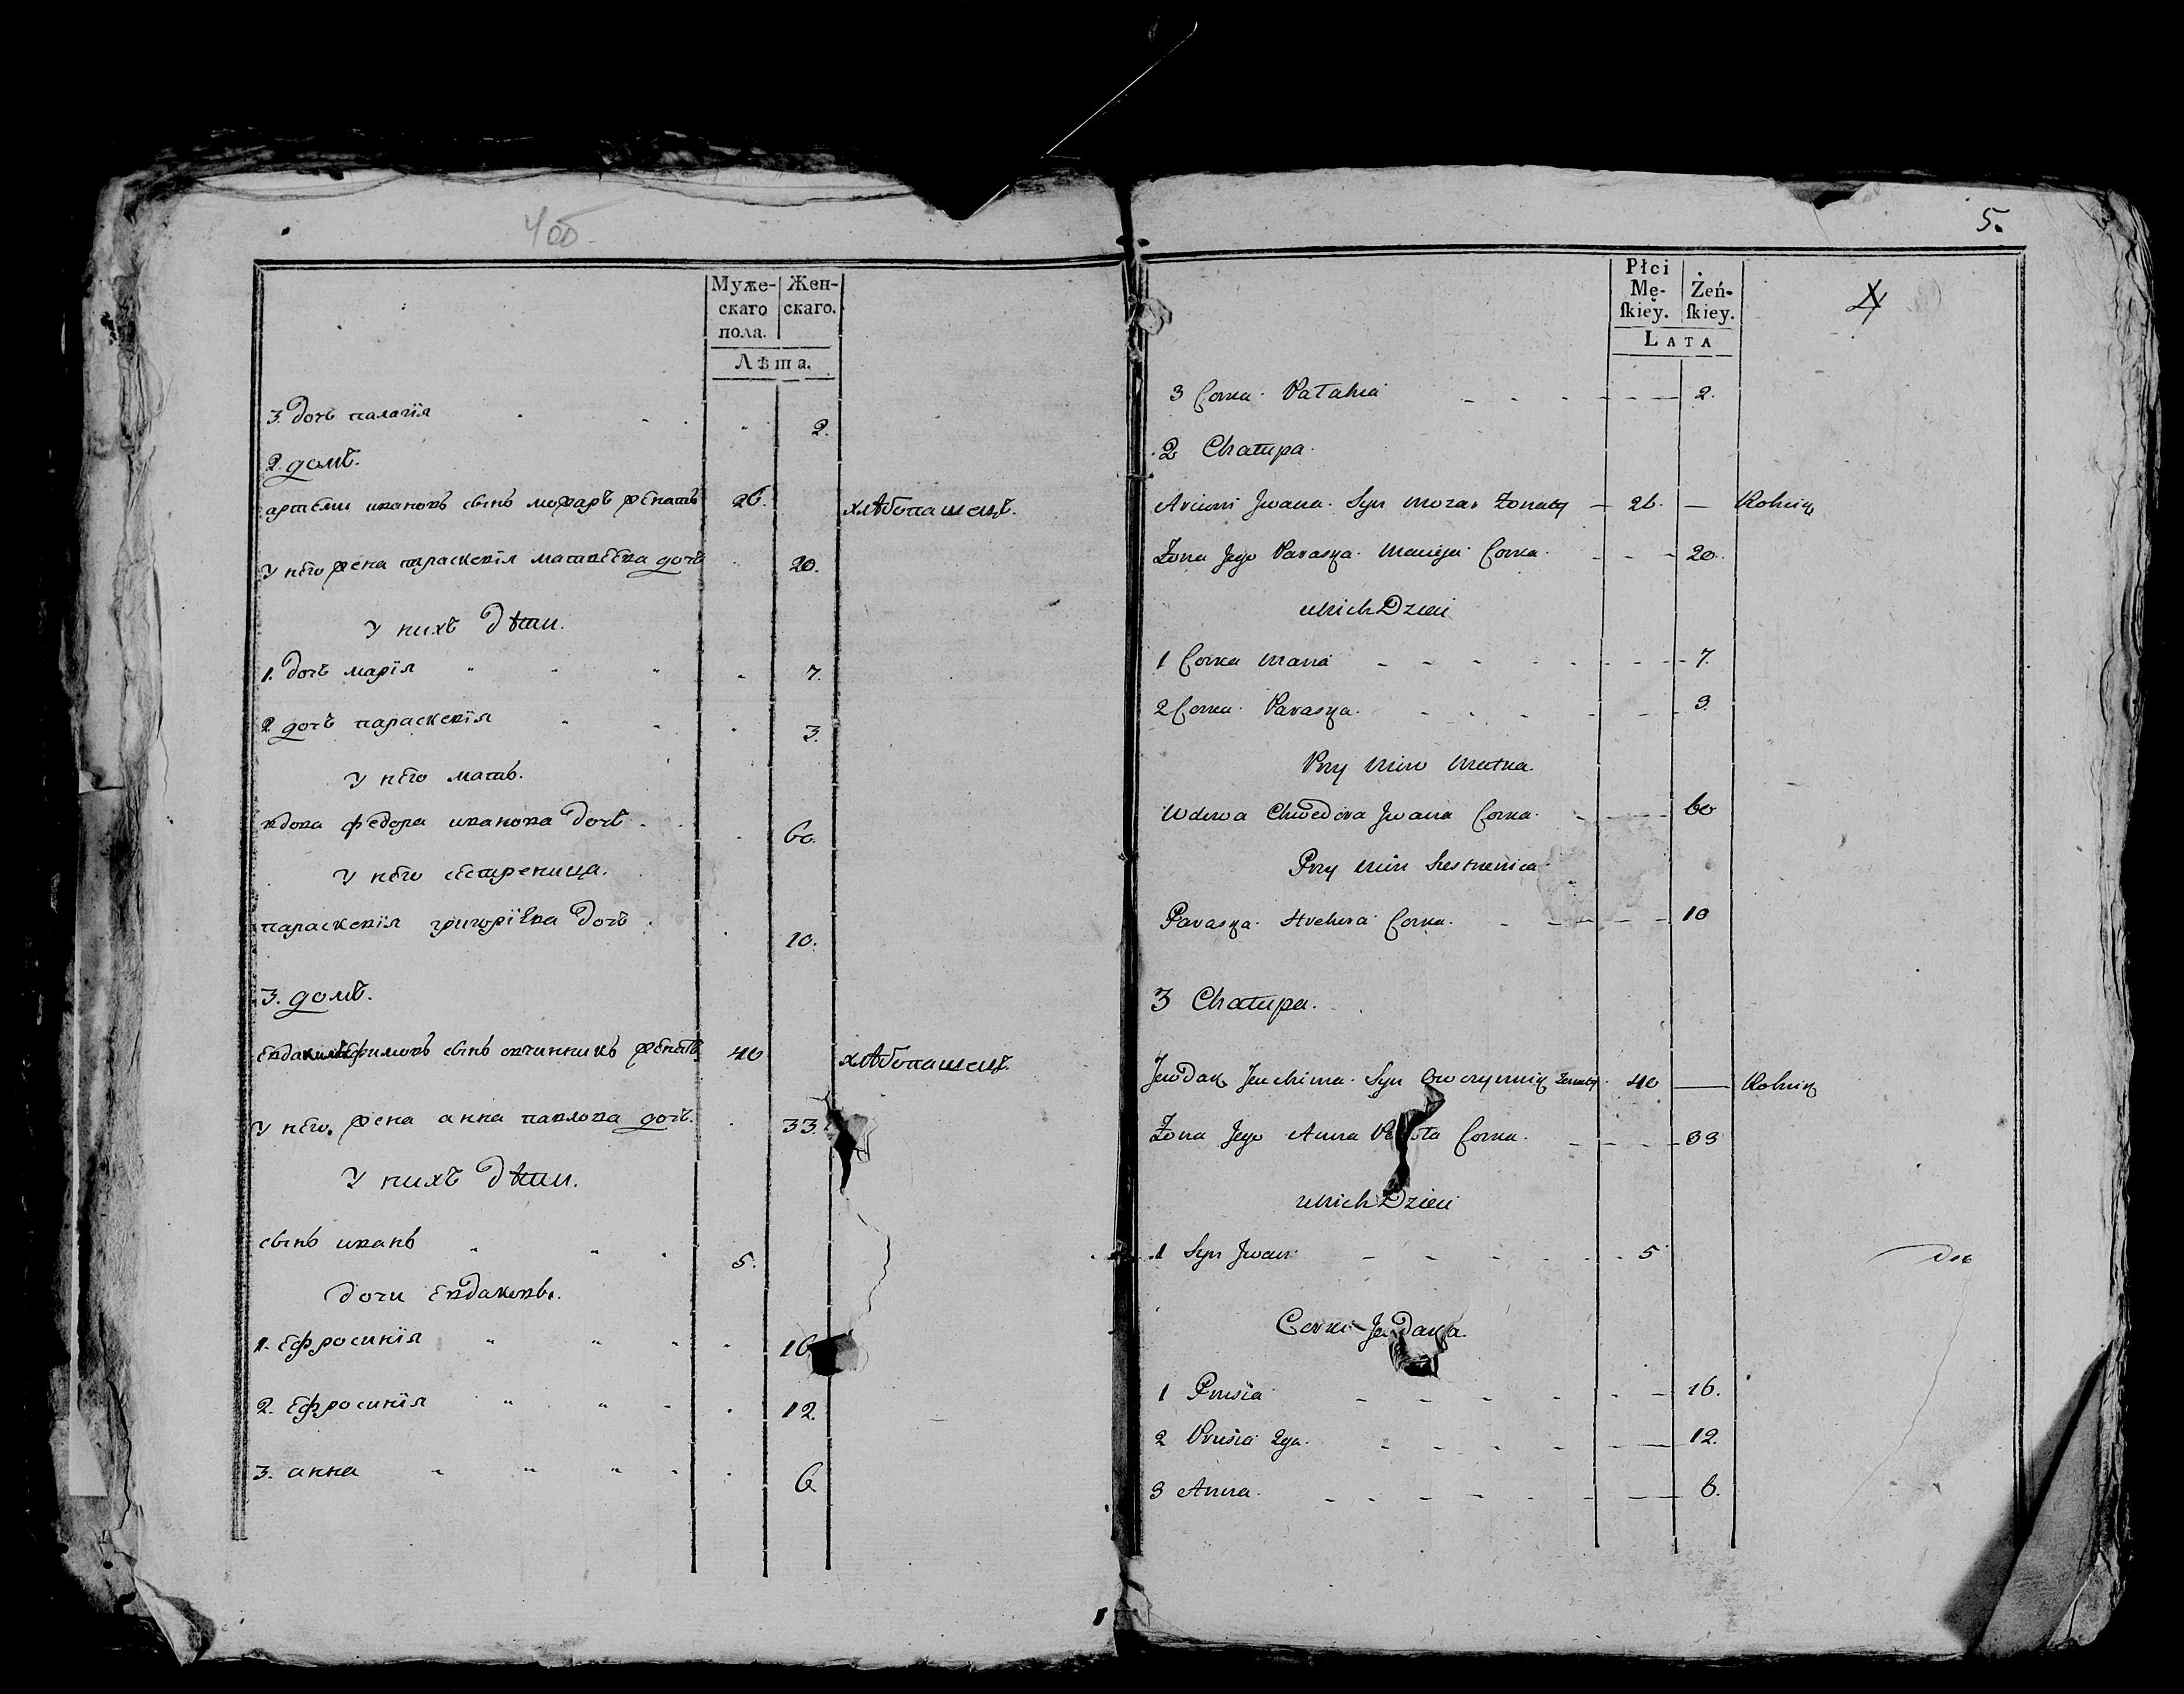 400
Муже-
скаго
пола.
Жен-
скаго.
Лѣта.
3. дочь палагїя 2.
2. домъ.
артеми ивановъ сынъможаръ женатъ 26. хлѣбопашецъ.
у него жена параскевїя матвеева дочь 20.
У нихъ дѣти.
1. дочь марїя 7.
2 дочь параскевїя 3.
У него мать.
вдова федора иванова дочь 60.
У него сестреница.
параскевїя григорїева дочь 10.
3. домъ.
евдакимъ ефимовъ сынъ овчинникъ женатъ 40 хлѣбопашецъ.
У него жена анна павлова дочь. 33.
У нихъ дѣти.
сынъ иванъ 5.
дочи евдаковы.
1. ефросинїя 16
2. ефросинїя 12.
3. анна 6
5.
4
Płci
Mę-
ſkiey.
Żeń-
ſkiey.
LATA
3 Corka Pałahia 2.
2 Chałupa.
Arciom Jwana Syn Mozar Zonaty 26. Rolnik
Zona Jego Paraska Macieja Corka 20.
u Nich Dzieci
1 Corka Maria 7.
2 Corka Paraska 3
Przy Nim Matka.
Wdowa Chwedora Jwana Corka 60
Przy Nim Siestrenica
Paraska Hrehora Corka 10
3 Chałupa.
Jewdak Jeuchima Syn Owczynnik Zonaty 40 Rolnik
Zona Jego Anna Corka 33
u Nich Dzieci
1 Syn Jwan 5
Corki Jewdaka.
1 Prusia 16.
2 Prusia 2ga. 12.
3 Anna 6.